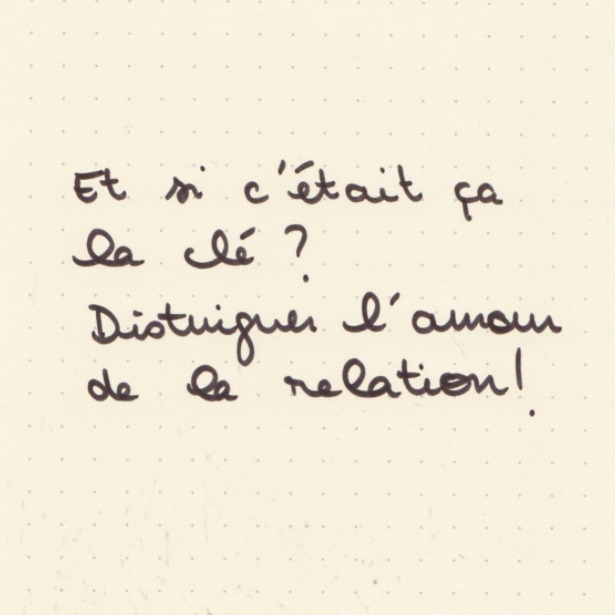 Et si c'était ça
la clé ?
Distinguer l'amour
de la relation !